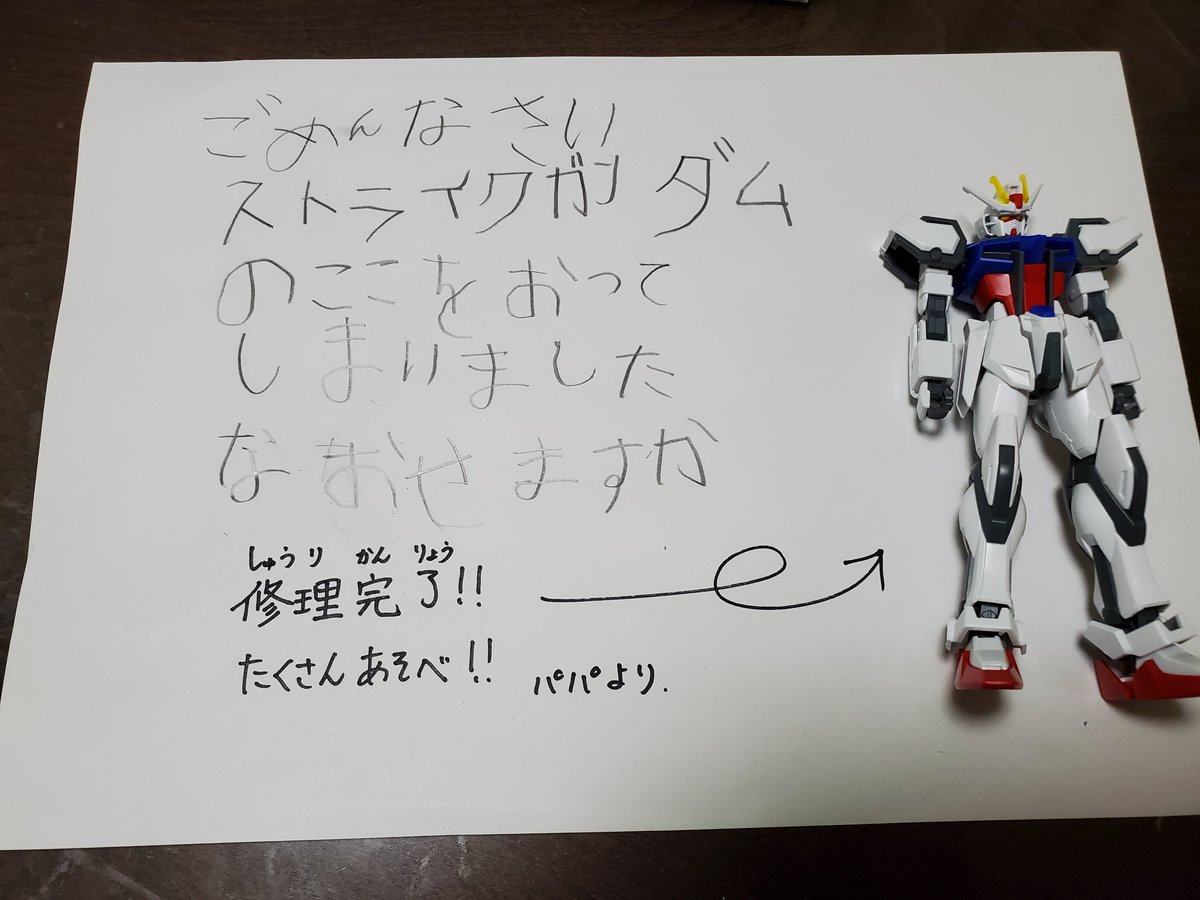 ごめんなさい
ストライクガンダム
のここをおって
しまいました
なおせますか
しゅうりかんりょう
修理完了!!
たくさんあそべ!!
パパより.